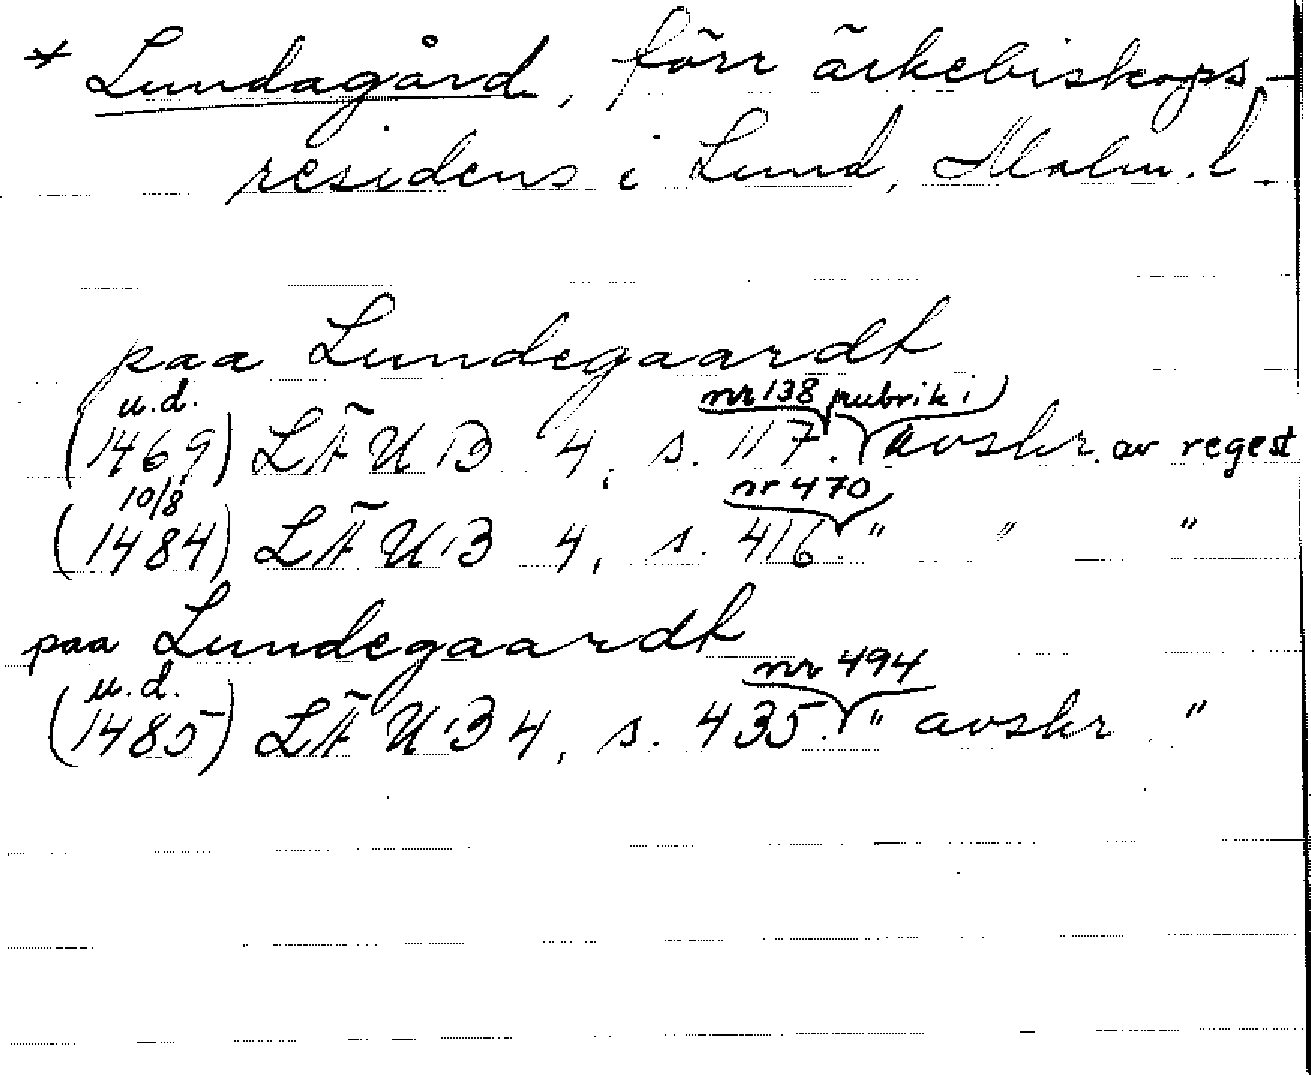 * Lundagård, förr ärkebiskops-
residens i Lund, Malm. l.
paa Lundegaardt
u.d. nr 138 rubrik i
(1469) LÄUB 4, s. 117. avskr. av regest
10/8 nr 470
(1484) LÄUB 4, s. 416. " " "
paa Lundegaardt
u.d. nr 494
(1485) LÄUB 4, s. 435. " avskr "